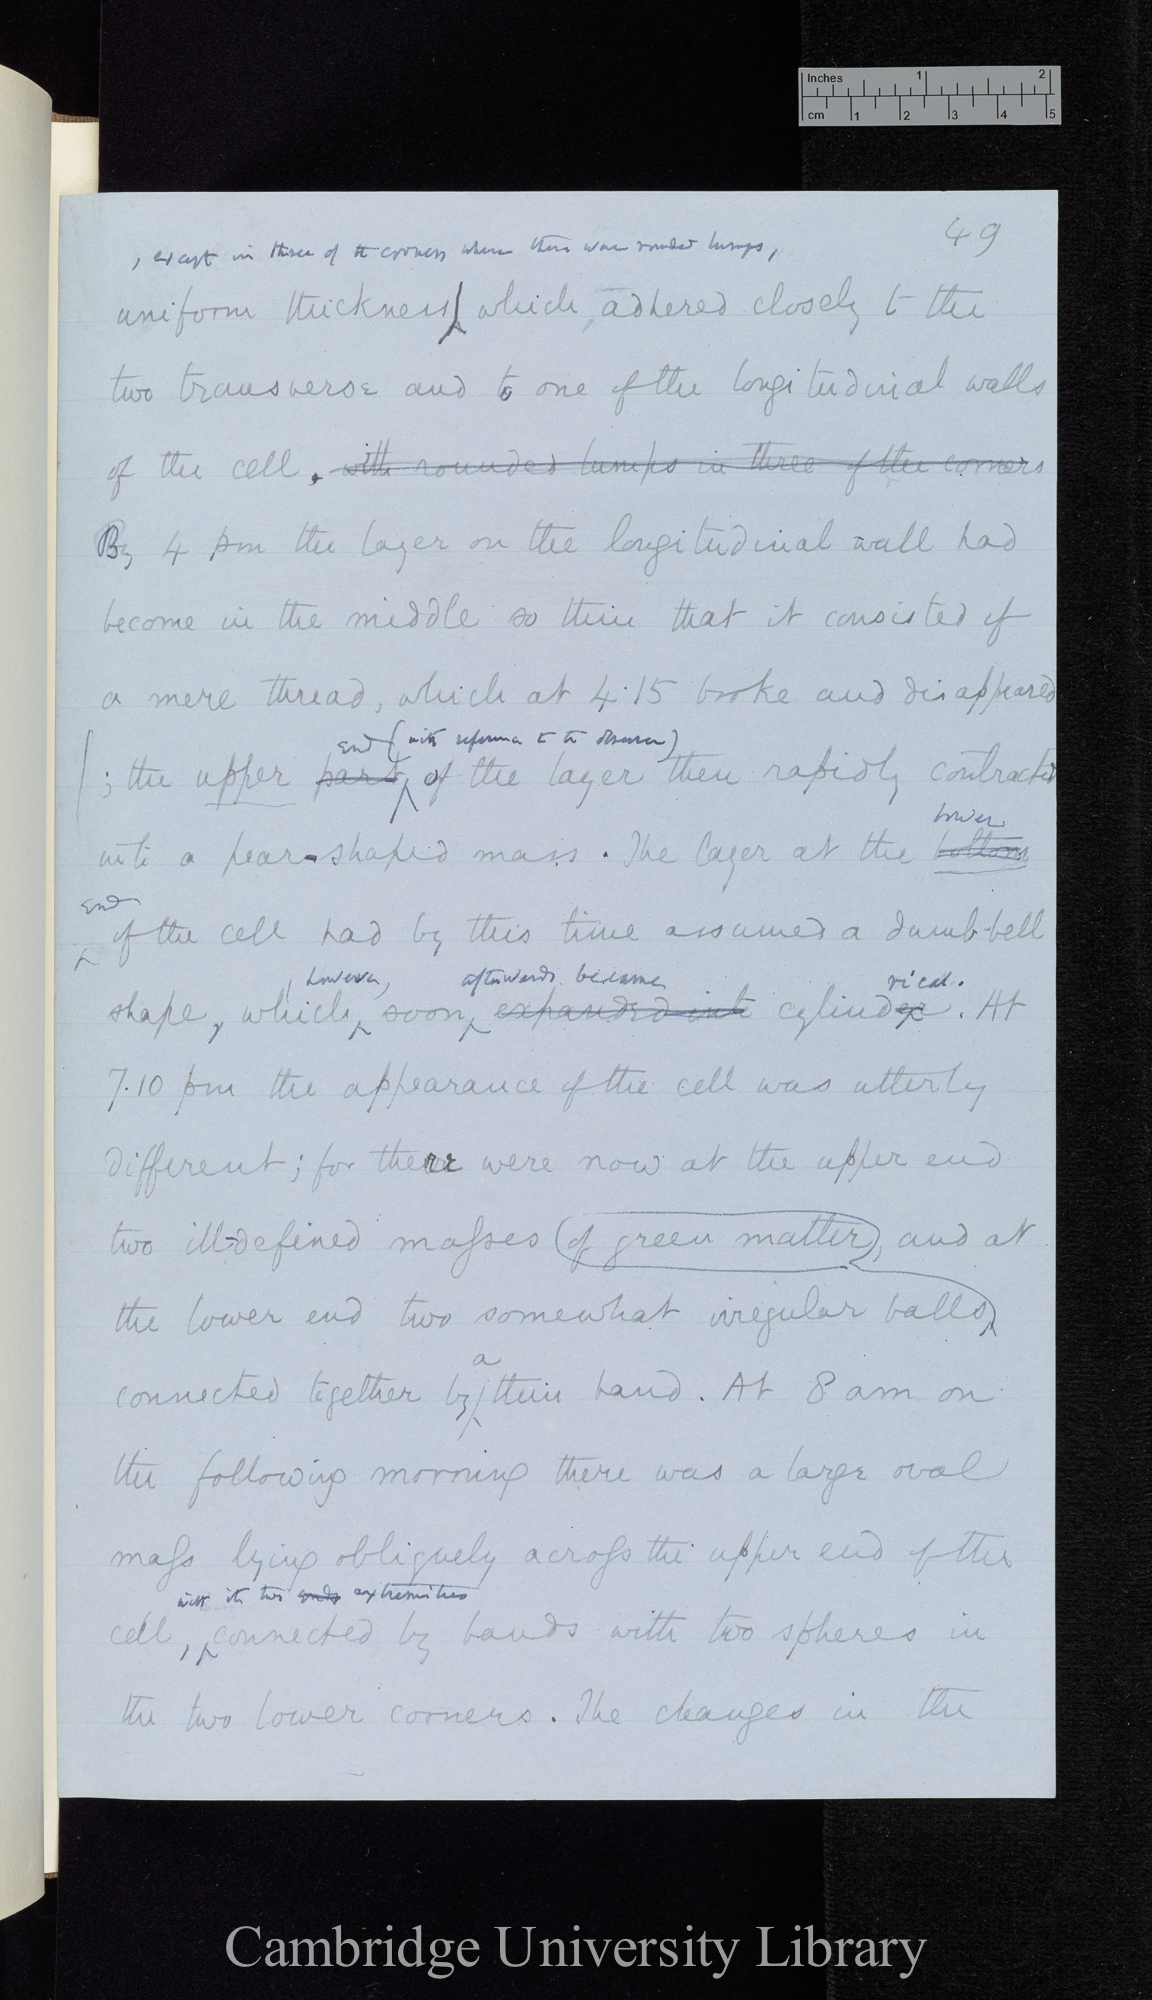 Inches 1 2
cm 1 2 3 4 5
49
, except in three of the corners where there were rounded lumps,
uniform thickness which, adhered closely to the
two transverse and to one of the longitudinal walls
of the cell. with rounded lumps in three of the corners
By 4 pm the layer on the longitudinal wall had
become in the middle so thin that it consisted of
a mere thread, which at 4.15 broke and disappeared
end (with reference to the observer)
; the upper part, of the layer then rapidly contracted
lower
into a pear-shaped mass. The layer at the bottom
end
of the cell had by this time assumed a dumb-bell
, however, afterwards became rical.
shape, which soon expanded into cylinder. At
7.10 pm the appearance of the cell was utterly
different; for there were now at the upper end
two ill-defined masses (of green matter), and at
the lower end two somewhat irregular balls,
a
connected together by thin band. At 8 am on
the following morning there was a large oval
mass lying obliquely across the upper end of the
with its two ends extremities
cell, connected by bands with two spheres in
the two lower corners. The changes in the
Cambridge University Library